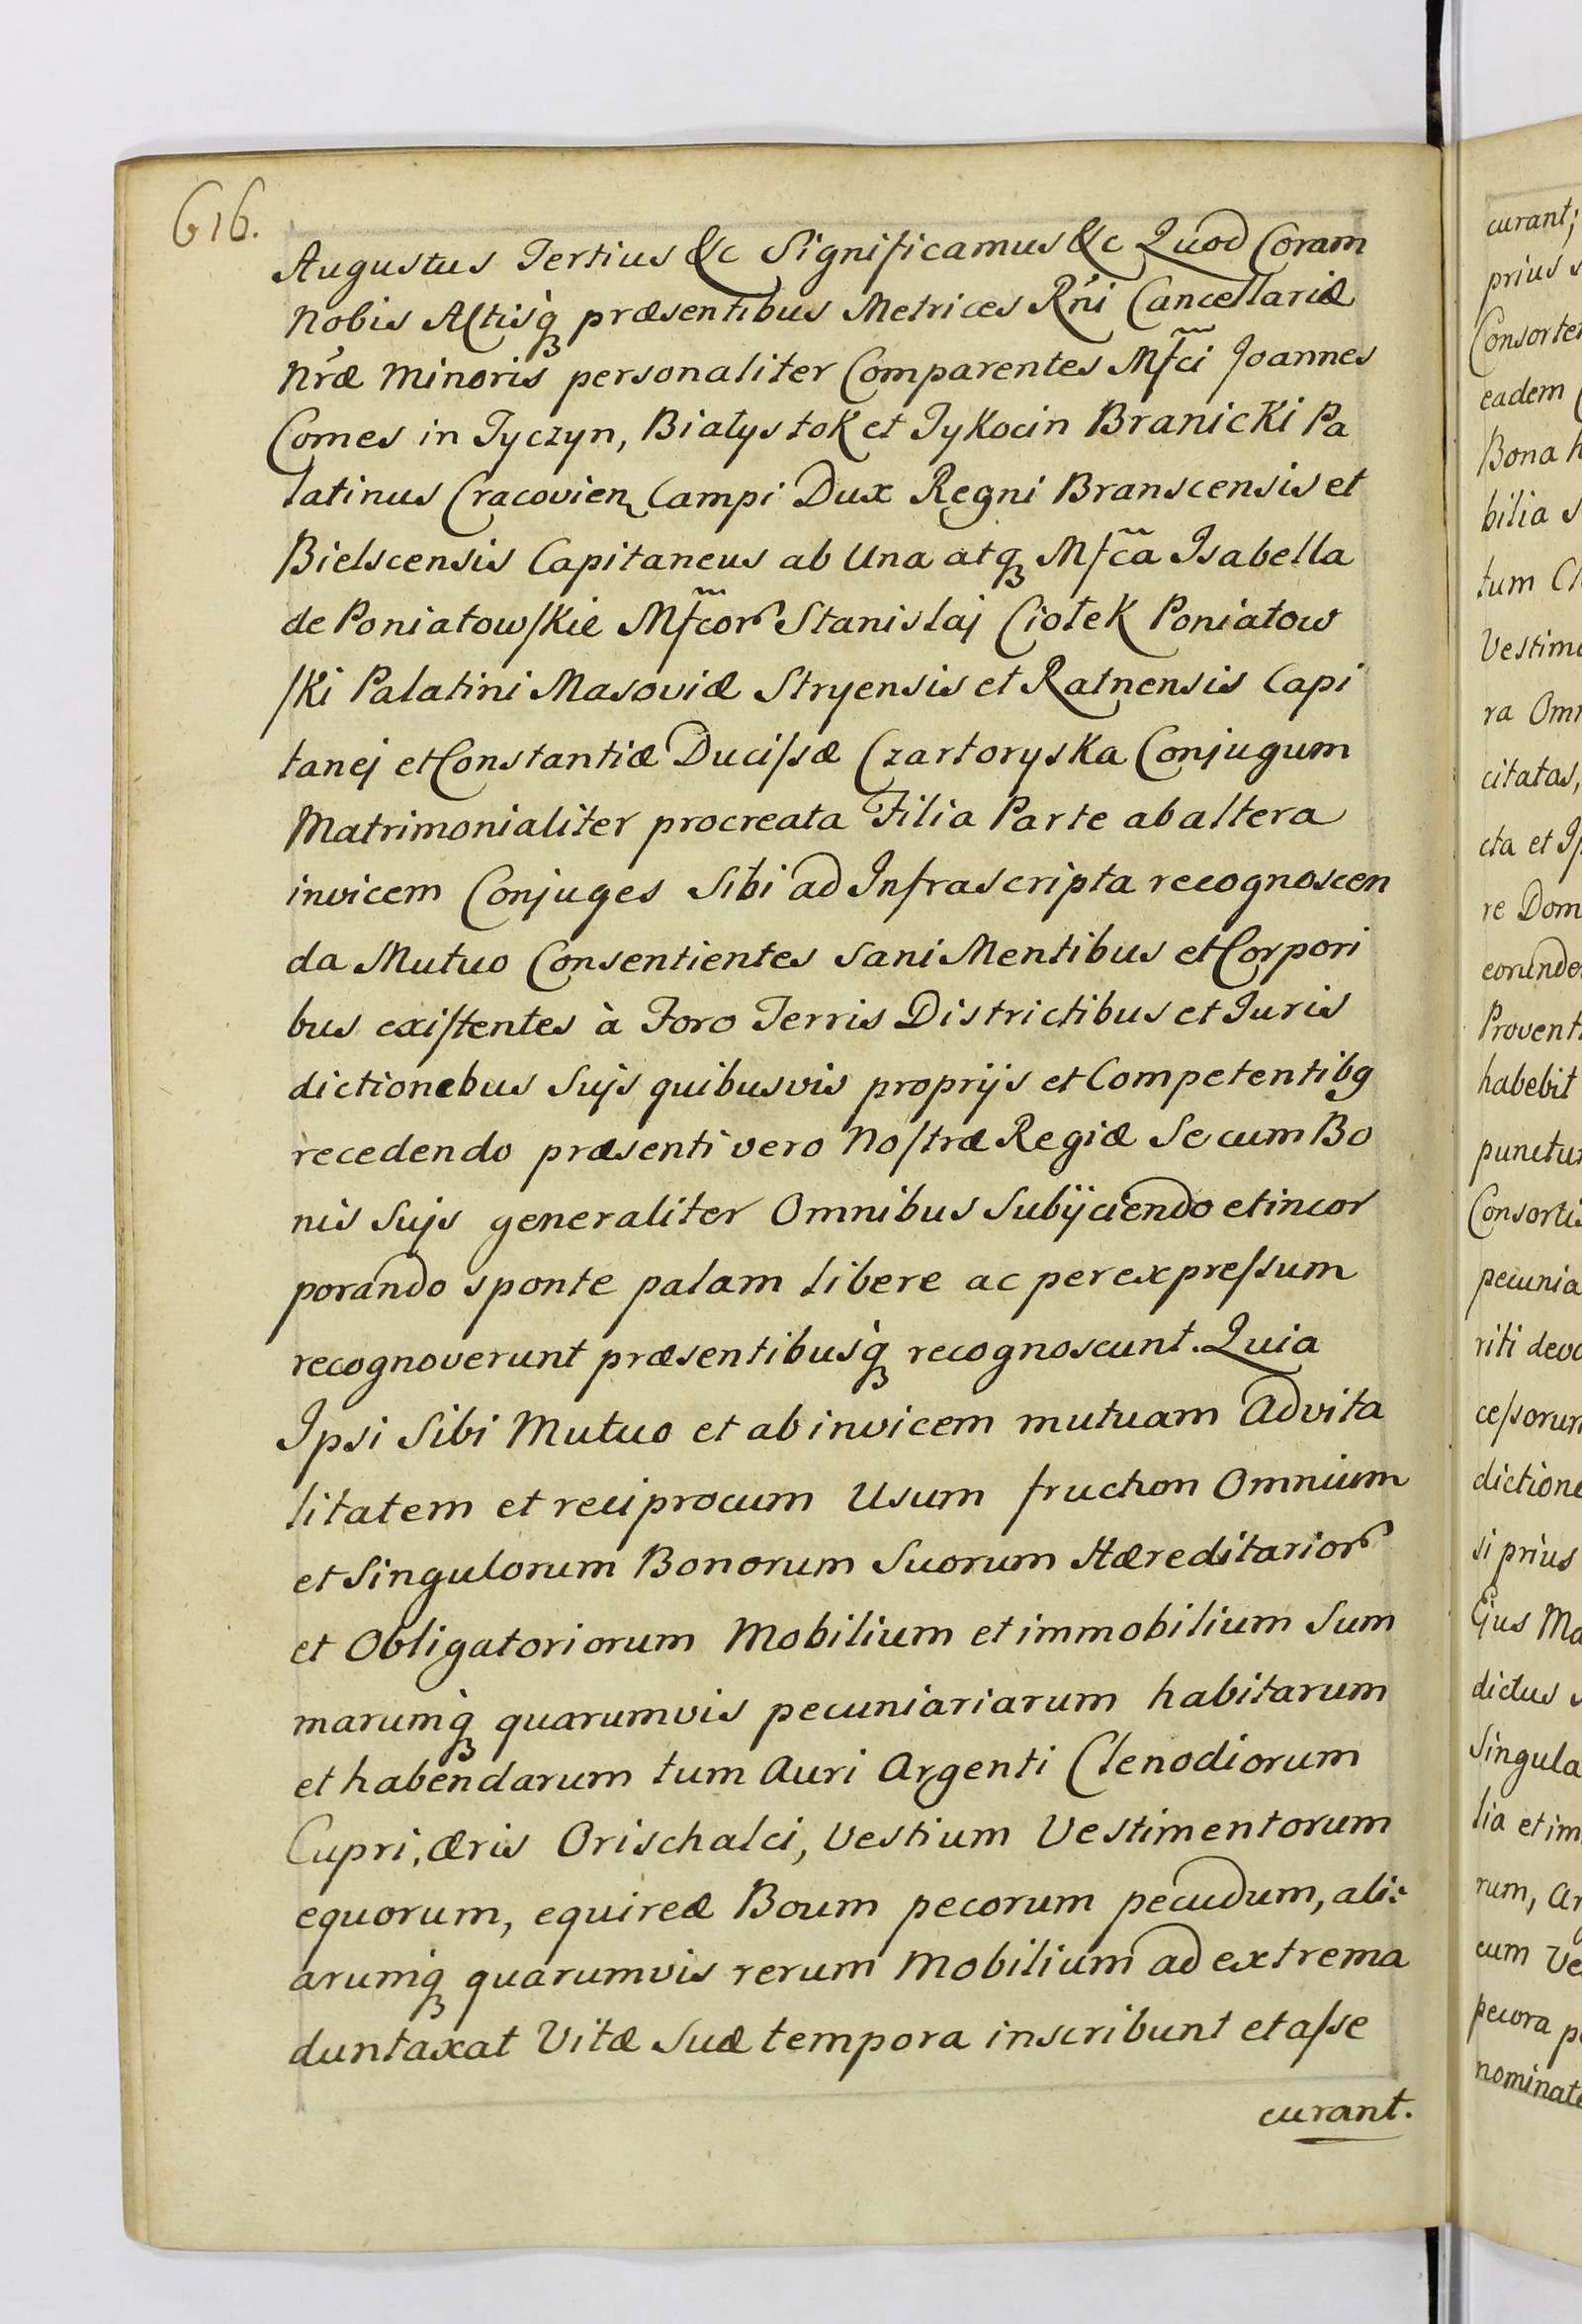 616.
Augustus Tertius &c Significamus &c Quod Coram
Nobis Actisq́ præsentibus Metrices Rńi Cancellariæ
Nŕæ Minoris personaliter Comparentes Mfc̃i Joannes
Comes in Tyczyn, Białystok et Tykocin Branicki Pa
latinus Cracovien Campi Dux Regni Branscensis et
Bielscensis Capitaneus ab Una atq Mfc̃a Isabella
de Poniatowſkie Mfc̃or Stanislaj Ciołek Poniatow
ſki Palatini Masoviæ Stryensis et Ratnensis Capi
tanej et Constantiæ Duciſsæ Czartoryska Conjugum
Matrimonialiter procreata Filia Parte ab altera
invicem Conjuges Sibi ad Infrascripta recognoscen
da Mutuo Consentientes Sani Mentibus et Corpori
bus exiſtentes à Foro Terris Districtibus et Juris
dictionebus Suis quibusvis proprijs et Competentibg
recedendo præsenti vero Noſtræ Regiæ Se cum Bo
nis Suis generaliter Omnibus Subijciendo et incor
porando sponte palam libere ac per expreſsum
recognoverunt præsentibusq́ recognoscunt. Quia
Ipsi Sibi Mutuo et ab invicem mutuam Advita
litatem et reciprocum Usum fruction Omnium
et Singulorum Bonorum Suorum Hæreditarior
et Obligatoriorum Mobilium et immobilium Sum
marumq́ quarumvis pecuniariarum habitarum
et habendarum tum Auri Argenti Clenodiorum
Cupri, æris Orischalci, Vestium Vestimentorum
equorum, equireæ Boum pecorum pecudum, ali:
arumq́ quarumvis rerum Mobilium ad extrema
duntaxat Vitæ Suæ tempora inscribunt et aſse
curant.
curant;
prius s
Consorte
eadem
Bona h
bilia s
tum Cl
Vestime
ra Om
citatas,
cta et Ip
re Dom
eorunde
Provent
habebit
punctu
Consortis
pecunia
riti devo
ceſsorum
dictione
si prius
Ejus Ma
dictus s
Singula
lia et im
rum, Ar
cum Ve
pecora p
nominat